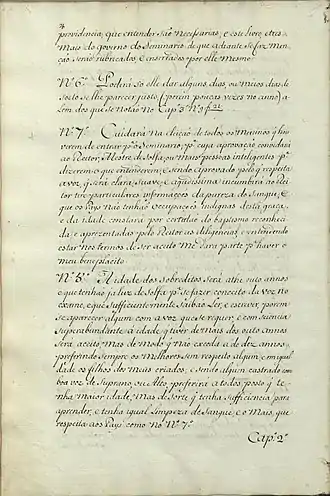 providencia, que entender são necessarias, e este livro, e tres
mais do governo do Seminario de que adiante se faz men
ção serão rubricados, e enserrados por elle mesmo.
Nº. 6º. Poderá só elle dar alguns dias, ou meios dias de
sueto se lhe parecer justo (porem poucas vezes no anno) a
lem dos que se notão no Cap. 3º Nº 3 f.
Nº. 7º. Cuidará na elição de todos os meninos q̃ hou
verem de entrar pª. o Seminario, pª. cuja aprovação convidará
ao Reitor, Mestre de Solfa, ou mais pessoas inteligentes pª.
dizerem o que entenderem, e sendo aprovado pelo q̃ respeita
a voz q̃ será clara, suave, e aguda incumbirá ao Rei
tor tire particulares informações da pureza de sangue, e
que os Pays não tenhão occupações indignas desta graça,
e da idade constará por certidão do baptismo reconheci
da, e aprezentadas pelo Reitor as diligencias, e entendendo
estar nos termos de ser aceito me dara parte pª. haver o
meu beneplacito.
Nº. 8º. A idade dos sobreditos será athe outo annos
e que tenhão já luz de solfa pª. se fazer conceito da voz no
exame, e que sufficientemente saibão ler, e escrever, porem
se aparecer algum com a voz que se requer, e com sciencia
superabundante à idade q̃ tiver de mais dos outo annos
será aceito, mas de modo q̃ não exceda a de dez annos,
preferindo sempre os melhores sem respeito algum, e in igual
dade os filhos dos meus criados; e sendo algum castrado com
boa voz de suprano, ou Alto preferirá a todos posto q̃ te
nha maior idade, mas de sorte q̃ tenha sufficiencia para
aprender, e tenha igual limpeza de sangue, e o mais, que
respeita aos Pays como no Nº. 7º.
Cap. 2º